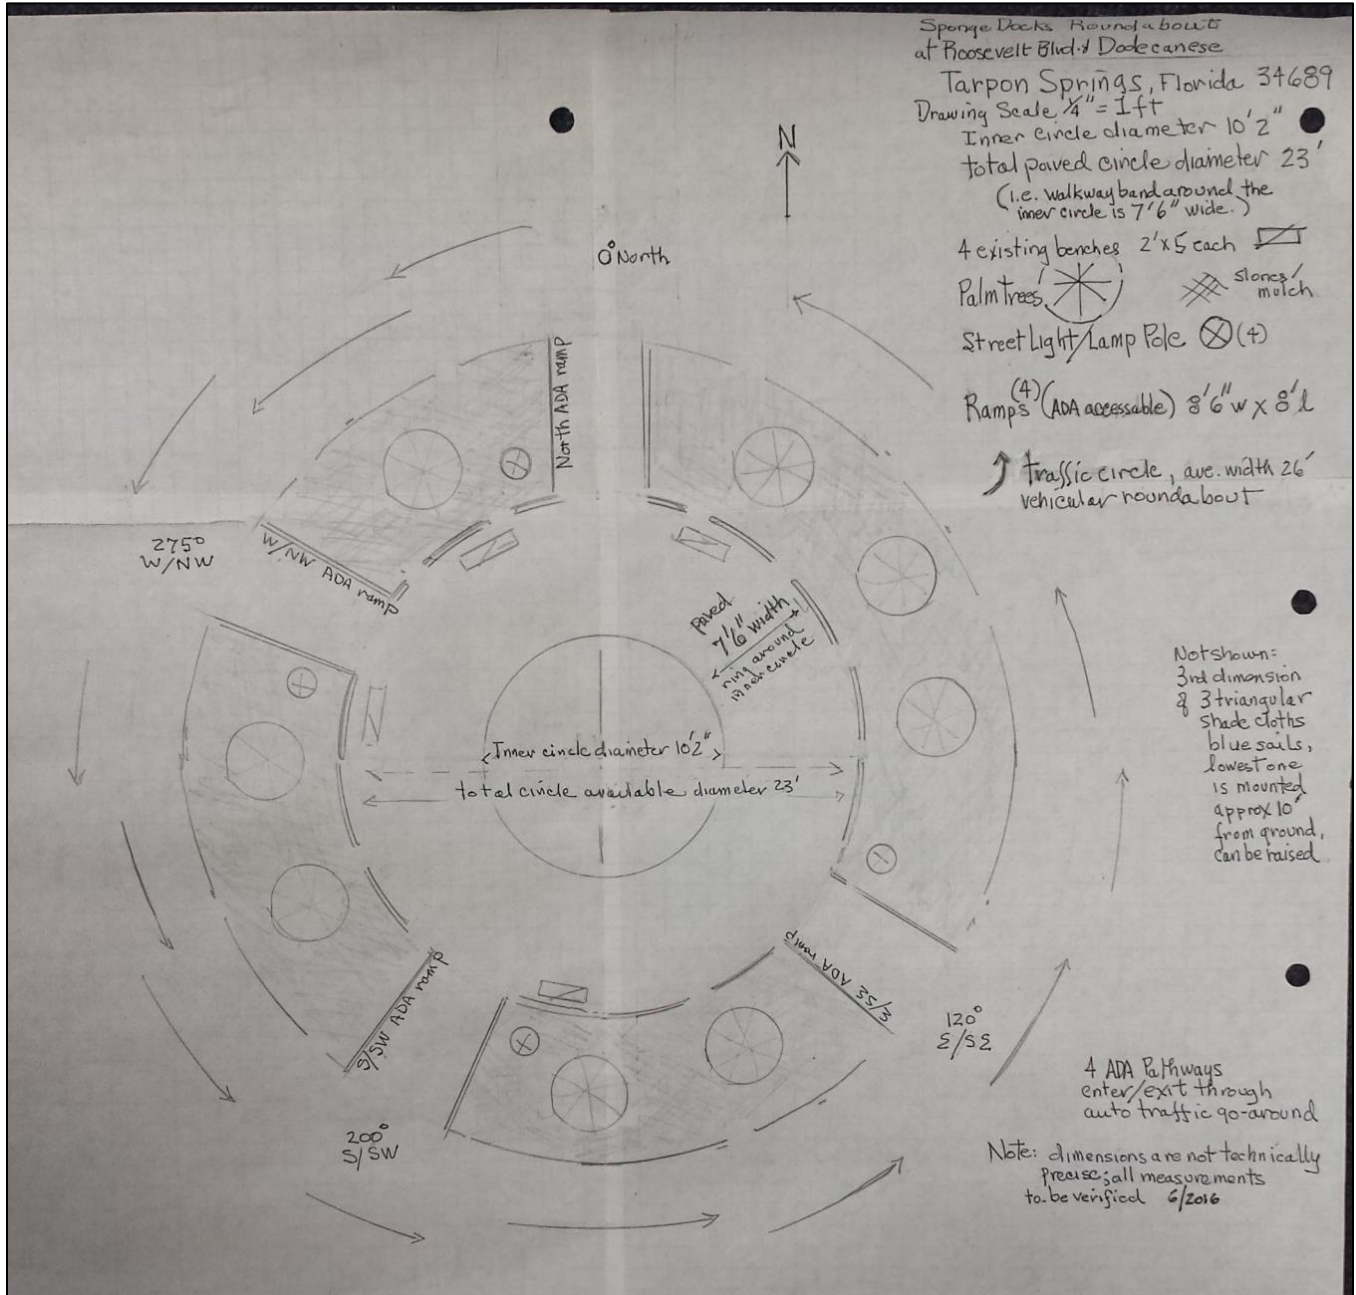 Sponge Docks Roundabout
at Roosevelt Blvd. & Dodecanese
Tarpon Springs, Florida 34689
Drawing Scale 1/4" = 1ft
Inner circle diameter 10'2"
total paved circle diameter 23'
(i.e. walkway band around the
inner circle is 7'6" wide.)
4 existing benches 2'x5' each
Palm Trees
stones/
mulch
Street Light/Lamp Pole (4)
Ramps (4) (ADA accessable) 8'6"w x 8'l
traffic circle, ave. width 26'
vehicular roundabout
N
0° North
North ADA ramp
275°
W/NW
W/NW ADA ramp
paved
7'6" width
ring around
inner circle
Inner circle diameter 10'2"
total circle available diameter 23'
Not shown:
3rd dimension
& 3 triangular
shade cloths
blue sails,
lowest one
is mounted
approx 10'
from ground,
can be raised
S/SW ADA ramp
E/SE ADA ramp
120°
E/SE
200°
S/SW
4 ADA Pathways
enter/exit through
auto traffic go-around
Note: dimensions are not technically
precise; all measurements
to be verified 6/2016